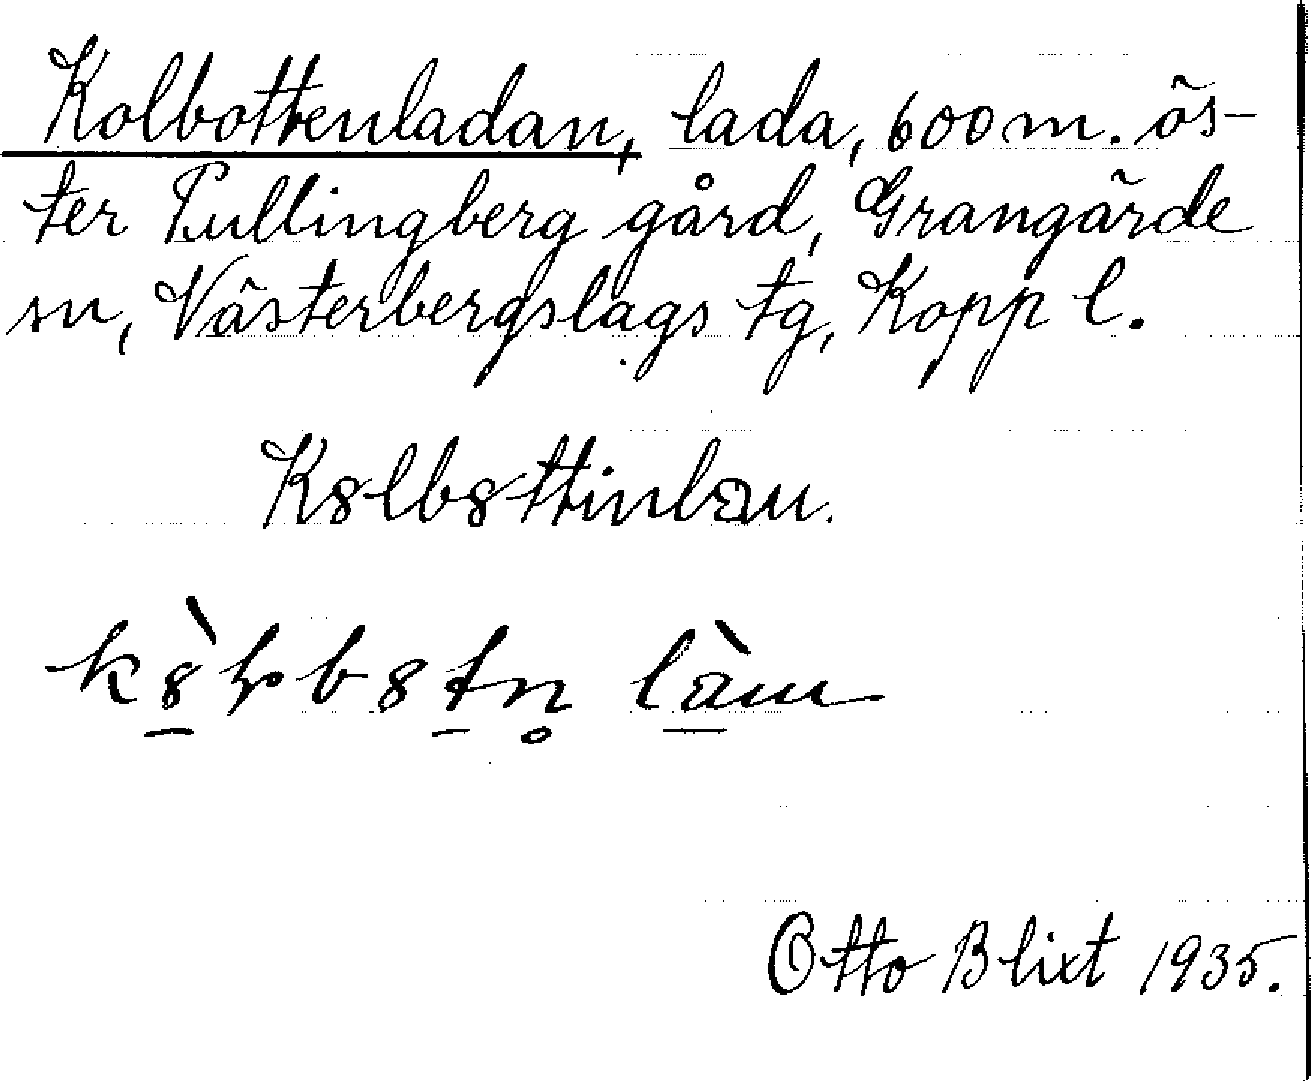 Kolbottenladan, lada, 600 m. ös-
ter Pullingberg gård, Grangärde
sn, Västerbergslags tg, Kopp l.
K8lb8ttinlaɷn.
Otto Blixt 1935.